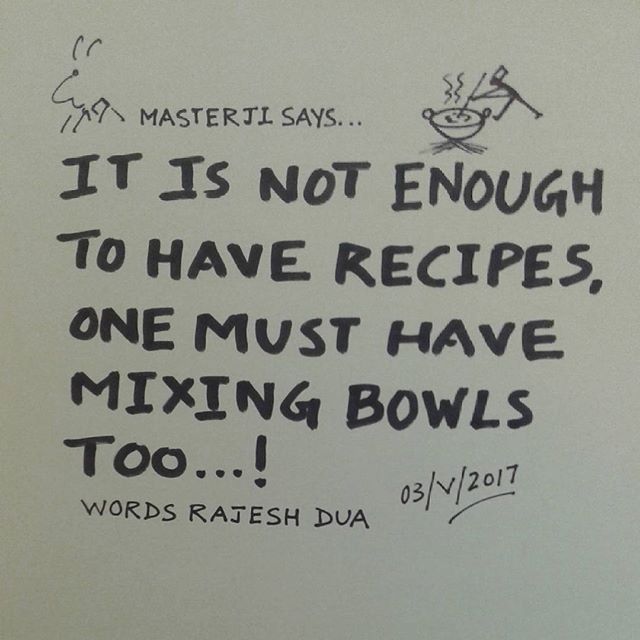 MASTERJI SAYS...
IT IS NOT ENOUGH
TO HAVE RECIPES,
ONE MUST HAVE
MIXING BOWLS
TOO...!
WORDS RAJESH DUA
03/V/2017